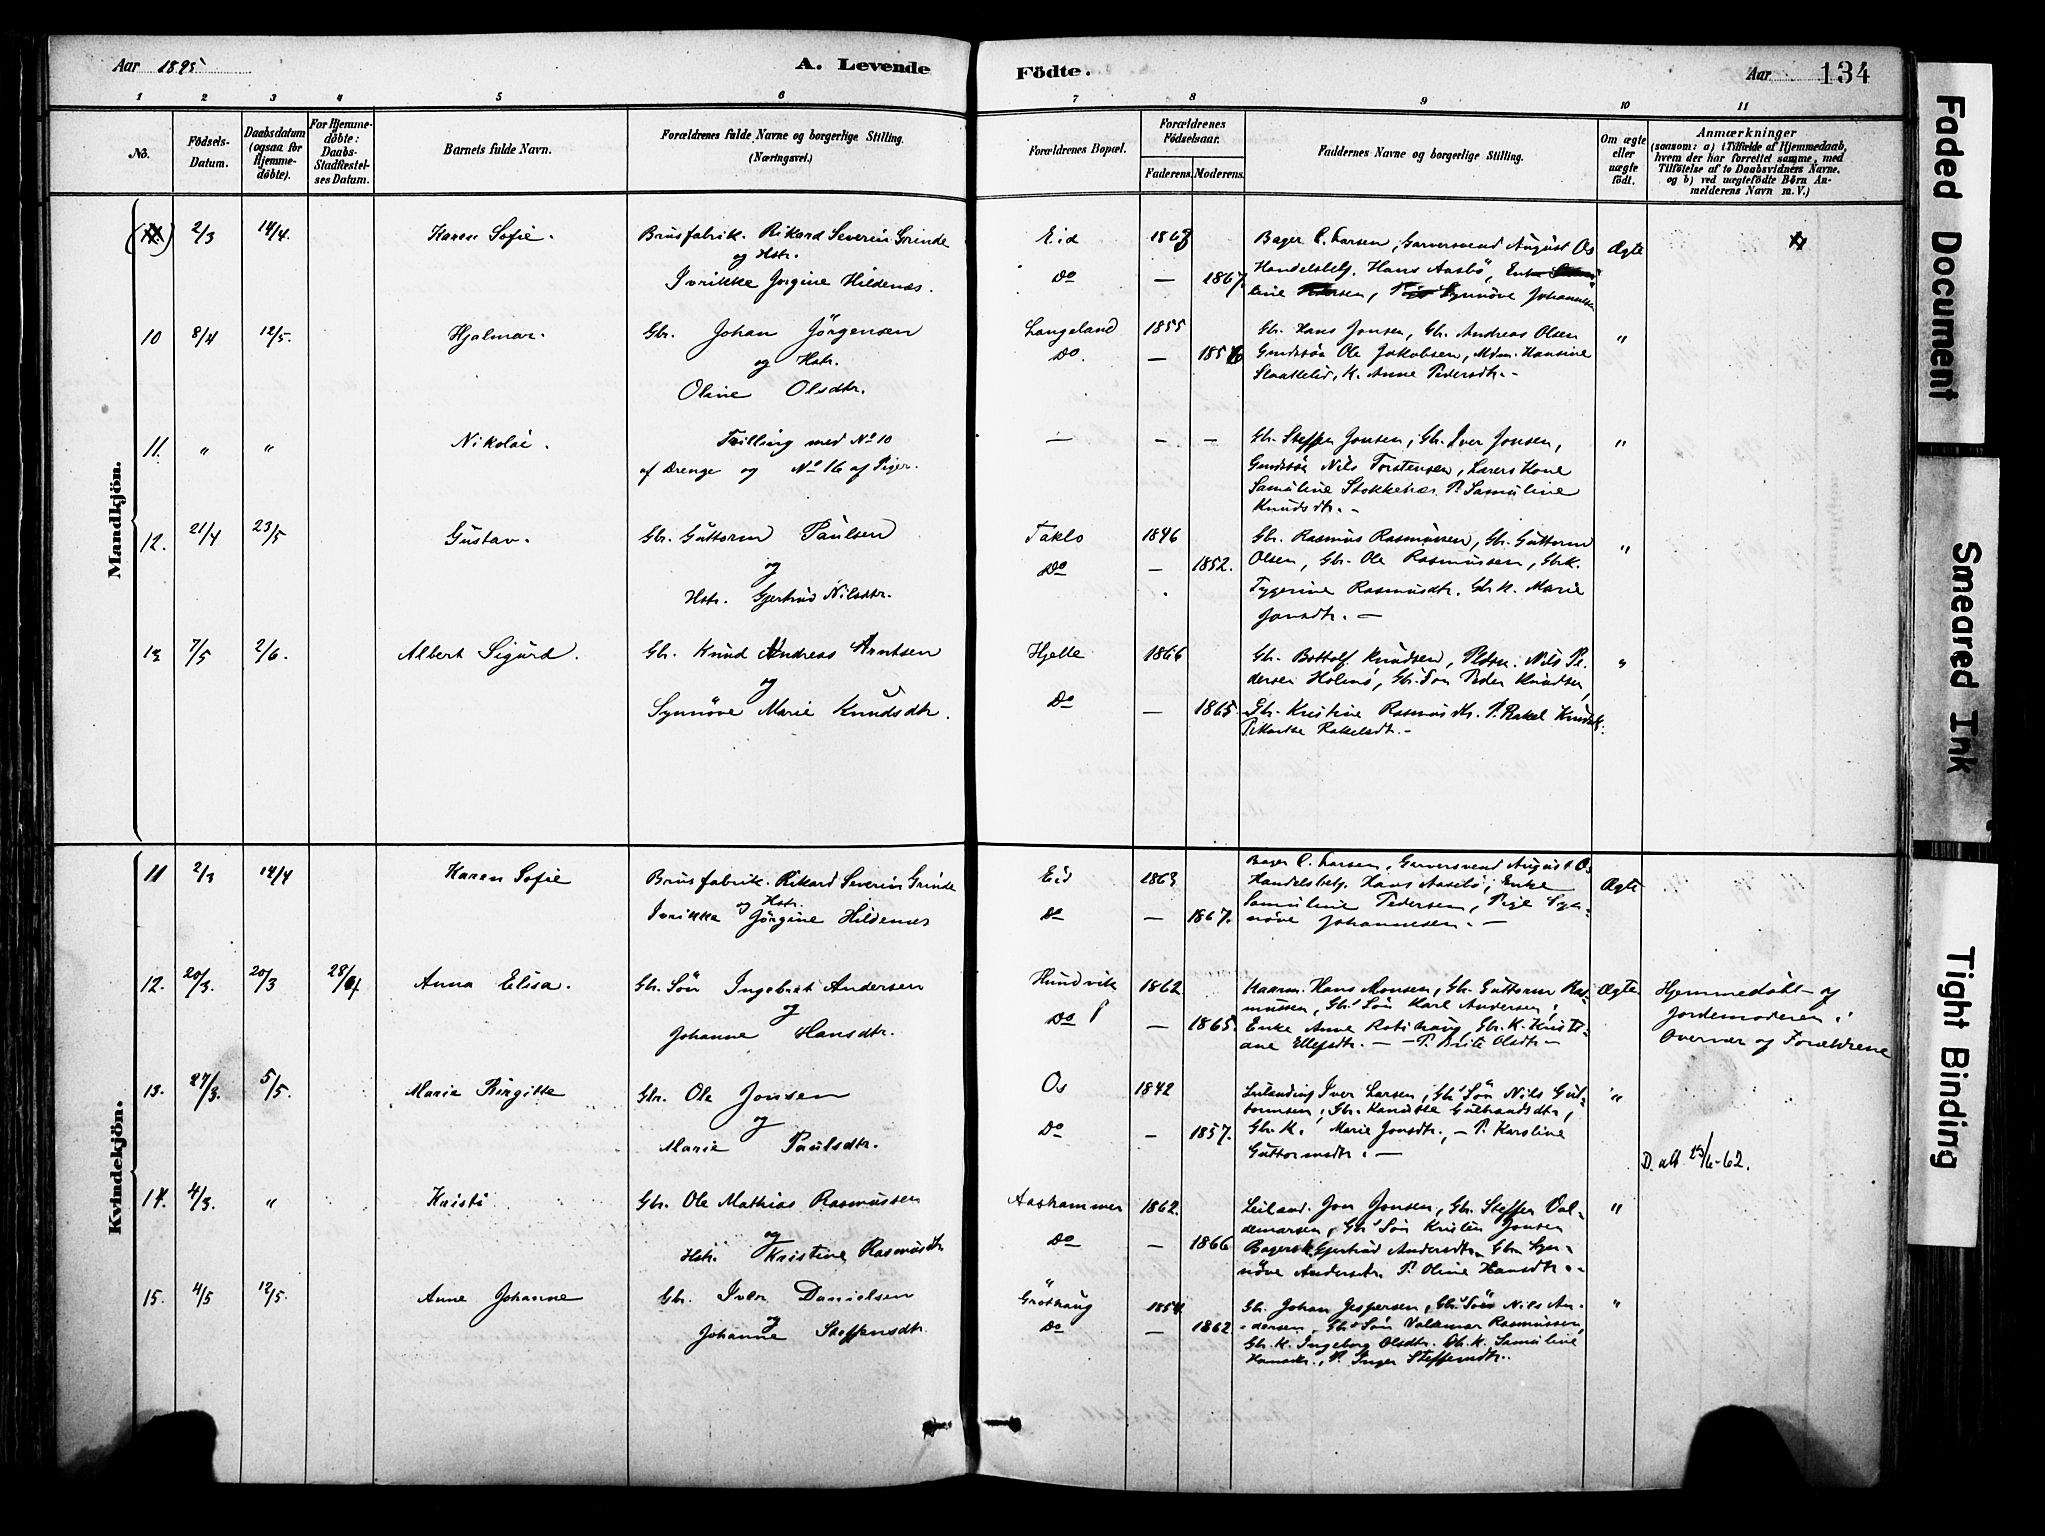 Aar 1895
A. Levende
Födte.
Aar
134
1 2 3 4 5 6 7 8 9 10 11
No.
Födsels-
Datum.
Daabsdatum
(ogsaa for
Hjemme-
döbte).
For Hjemme-
döbte:
Daabs-
Stadfæstel-
ses Datum.
Barnets fulde Navn.
Forældrenes fulde Navne og borgerlige Stilling.
(Næringsvei.)
Forældrenes Bopæl.
Forældrenes
Födselsaar.
Faderens. Moderens.
Faddernes Navne og borgerlige Stilling.
Om ægte
eller
uægte
födt.
Anmærkninger
(saasom: a) i Tilfælde af Hjemmedaab,
hvem der har forrettet samme, med
Tilföielse af to Daabsvidners Navne,
og b) ved uægtefödte Börn An-
melderens Navn m. V.)
Mandkjön.
2/3 14/4. Karen Sofie. Brusfabrik. Rikard Severin Grinde Eid 1863 Bager C. Larsen, Garversvend August Os Ægte
og Hstr. Handelsbetj. Hans Aasbö, Enke
Ivrikke Jørgine Hildenæs. Do — 1867. line Synnöve Johannesen
10 8/4 12/5. Hjalmar. Gbr. Johan Jörgensen Langeland 1855 Gbr. Hans Jonsen, Gbr. Andreas Olsen "
og Hstr. Do. — Ole Jakobsen, Mdm. Hansine
Oline Olsdtr. K. Anne Pedersdtr. -
11. " " Nikolai. Trilling med No 10 — — — Gbr. Steffen Jonsen, Gbr. Iver Jonsen, "
af Drenge og No 16 af Piger. Nils Torstensen, Lærers Kone
Samuline P. Samuline
Knudsdtr. -
12. 21/4 23/5 Gustav. Gbr. Guttorm Paulsen Taklo 1846 Gbr. Rasmus Rasmussen, Gbr. Guttorm "
og Do — 1852. Olsen, Gbr. Ole Rasmussen, Gbrk.
Hstr. Gjertrud Nilsdtr. Rasmusdtr. Gbr K. Marie
Jonsdtr. —
13 7/5 2/6. Albert Sigurd. Gbr. Knud Andreas Arntsen Hjelle 1866 Gbr. Bottolf Knudsen, Nils Pe- "
og dersen Gbr. Sön Peder Knudsen,
Synnöve Marie Knudsdtr. Do — 1865. Gbr. Kristine Rasmusdtr. P. Rakel
P. Rakelsdtr. -
Kvindekjön.
11 2/3 14/4 Karen Sofie Brusfabrik. Rikard Severin Grinde Eid 1863 Bager C. Larsen, Garversvend August Os
og Hstr. Handelsbetj. Hans Aasebö, Enke Ægte
Ivrikka Jörgine Hildenæs Do — 1867. Samuline Pedersen, Pige Syn-
növe Johannesen. —
12. 20/3. 20/3 Anna Elisa. Gbr. Sön Ingebrigt Andersen Hundvik 1862 Hans Monsen, Gbr. Guttorm Ras- Ægte Hjemmedöbt af
og mussen, Gbr. Sön Karl Andersen, Jordemoderen i
Johanne Hansdtr. Do — 1865. Enke Anne Gbr. K. Kristi- Overvær af Forældrene
ane Ellefsdtr. — P. Brite Olsdtr —
13. 27/3. 5/5. Marie Birgitte Gbr. Ole Jonsen Os 1842 Iver Larsen, Gbr. Sön Nils Gut- "
og tormsen, Gbr.
Marie Paulsdtr. Do — 1857. Gbr. K. Marie Jonsdtr., — P. Karoline
Guttormsdtr. —
D. att. 23/6-62.
14. 4/3. " Kristi Gbr. Ole Mathias Rasmussen Aashammer 1862. Jon Jonsen, Gbr. Steffen Val- "
og demarsen, Gbr. Sön Kristen Jonsen
Hstr. Kristine Rasmusdtr Do — 1866 Gjertrud Andersdtr. Syn-
növe Andersdtr. P. Oline Hansdtr. -
15. 4/5 12/5. Anne Johanne Gbr. Iver Danielsen Gröthaug 1854. Gbr. Johan Jespersen, Gbr. Sön Nils An- "
og Do — 1862 dersen, Gbr. Sön Valdemar Rasmussen,
Johanne Steffensdtr. Gbr. K. Ingeborg Olsdtr. Gbr. K. Samuline
Hansdtr., P. Inger Steffensdtr.
Faded Document
Smeared Ink
Tight Binding